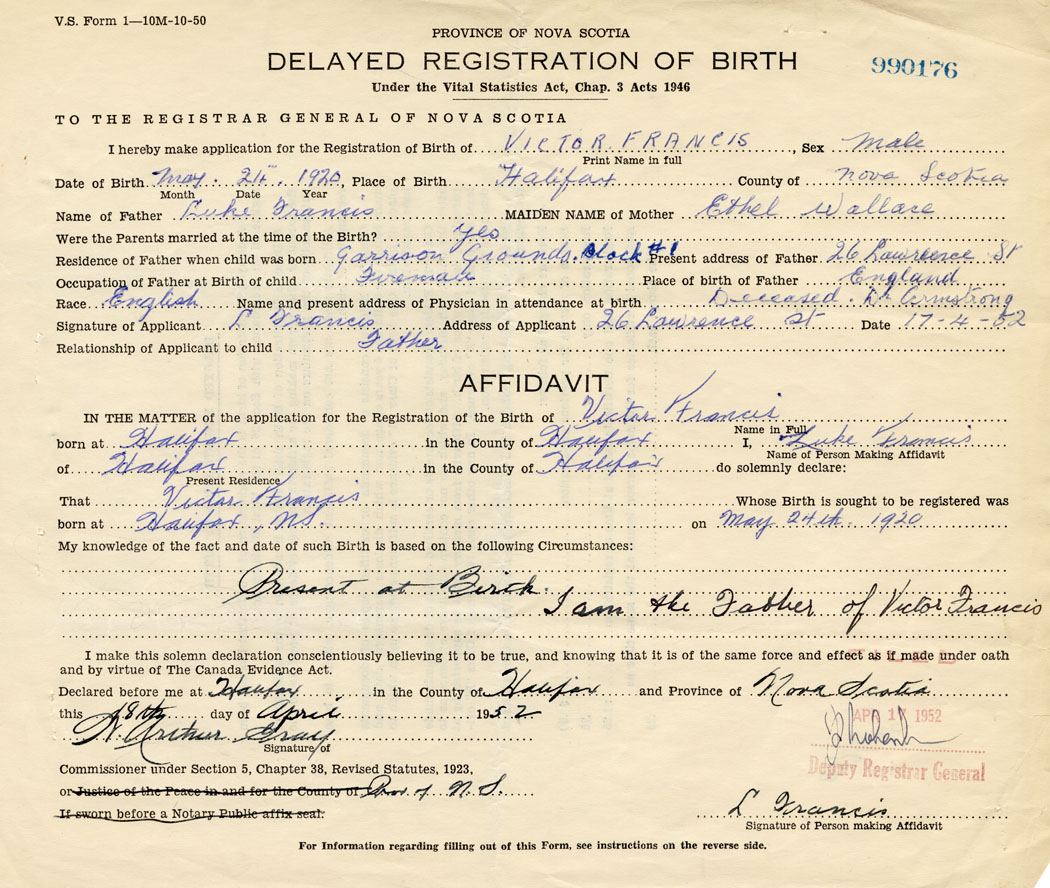 V.S. Form 1—10M-10-50
PROVINCE OF NOVA SCOTIA
DELAYED REGISTRATION OF BIRTH
990176
Under the Vital Statistics Act, Chap. 3 Acts 1946
TO THE REGISTRAR GENERAL OF NOVA SCOTIA
I hereby make application for the Registration of Birth of VICTOR FRANCIS, Sex Male
Print Name in full
Date of Birth May. 24th 1920, Place of Birth Halifax County of Nova Scotia
Month Date Year
Name of Father Luke Francis MAIDEN NAME of Mother Ethel Wallace
Were the Parents married at the time of the Birth? Yes
Residence of Father when child was born Garrison Grounds. Block #1 Present address of Father 26 Lawrence St
Occupation of Father at Birth of child Fireman Place of birth of Father England
Race English Name and present address of Physician in attendance at birth Deceased. Dr Armstrong
Signature of Applicant L Francis Address of Applicant 26 Lawrence St Date 17-4-52
Relationship of Applicant to child Father
AFFIDAVIT
IN THE MATTER of the application for the Registration of the Birth of Victor Francis
Name in Full
born at Halifax in the County of Halifax I, Luke Francis
Name of Person Making Affidavit
of Halifax in the County of Halifax do solemnly declare:
Present Residence
That Victor Francis Whose Birth is sought to be registered was
born at Halifax, N.S. on May 24th. 1920
My knowledge of the fact and date of such Birth is based on the following Circumstances:
Present at Birth.
I am the Father of Victor Francis
I make this solemn declaration conscientiously believing it to be true, and knowing that it is of the same force and effect as if made under oath
FILED
and by virtue of The Canada Evidence Act.
Declared before me at Halifax in the County of Halifax and Province of Nova Scotia
this 18th day of April 1952
APR 17 1952
N. Arthur Gray
Signature of
Deputy Registrar General
Commissioner under Section 5, Chapter 38, Revised Statutes, 1923,
or Justice of the Peace in and for the County of Prov of N.S.
If sworn before a Notary Public affix seal.
L Francis
Signature of Person making Affidavit
For Information regarding filling out of this Form, see instructions on the reverse side.